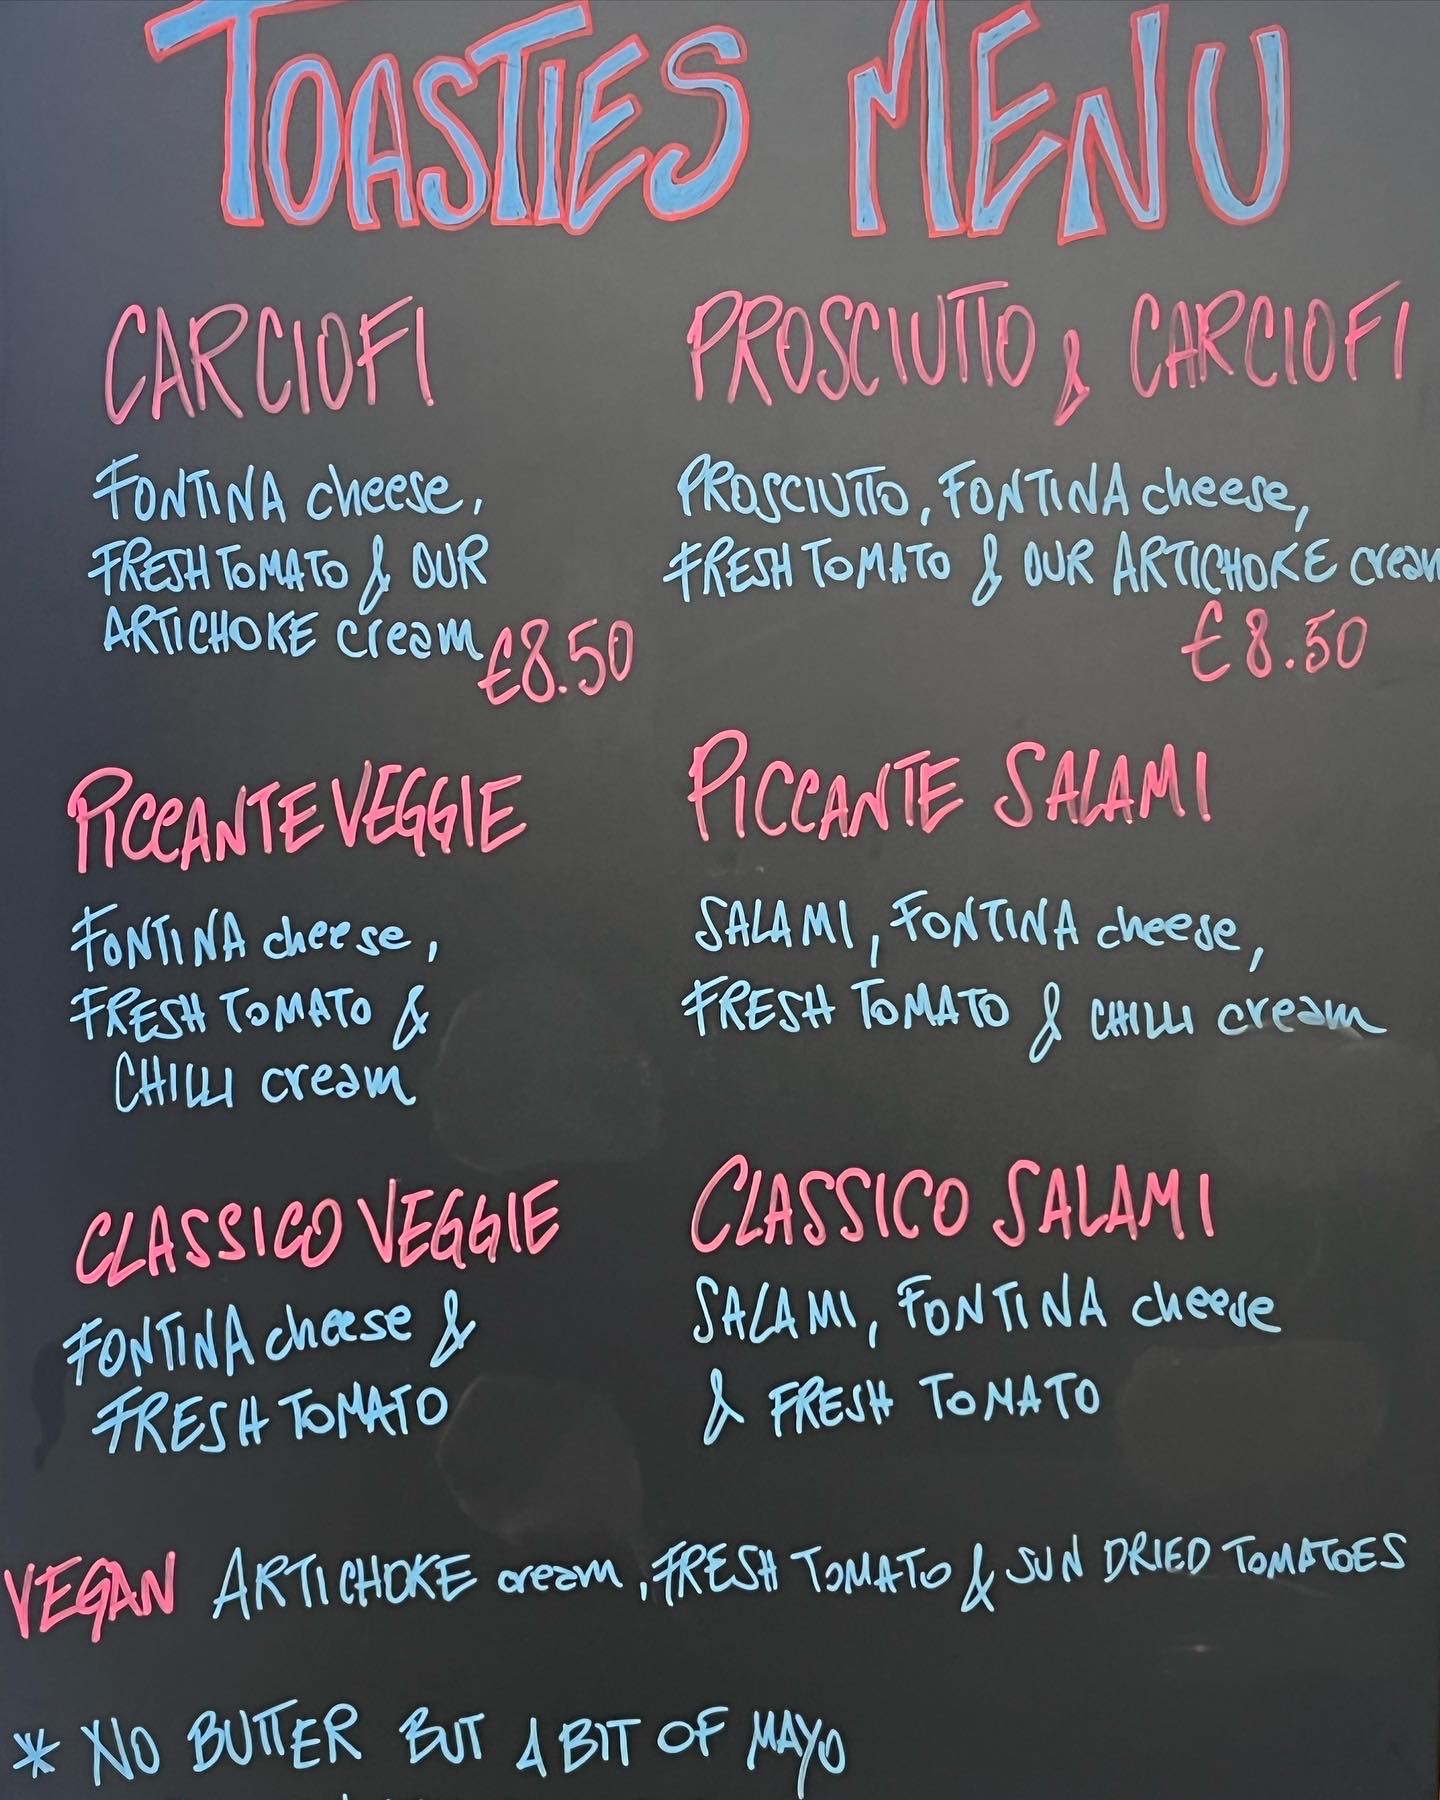 TOASTIES MENU
CARCIOFI
FONTINA cheese,
FRESH TOMATO & OUR
ARTICHOKE cream
€8.50
PROSCIUTTO & CARCIOFI
PROSCIUTTO, FONTINA cheese,
FRESH TOMATO & OUR ARTICHOKE cream
€8.50
PICCANTE VEGGIE
FONTINA cheese,
FRESH TOMATO &
CHILLI cream
PICCANTE SALAMI
SALAMI, FONTINA cheese,
FRESH TOMATO & CHILLI cream
CLASSICO VEGGIE
FONTINA cheese &
FRESH TOMATO
CLASSICO SALAMI
SALAMI, FONTINA cheese
& FRESH TOMATO
VEGAN ARTICHOKE cream, FRESH TOMATO & SUN DRIED TOMATOES
* NO BUTTER BUT A BIT OF MAYO